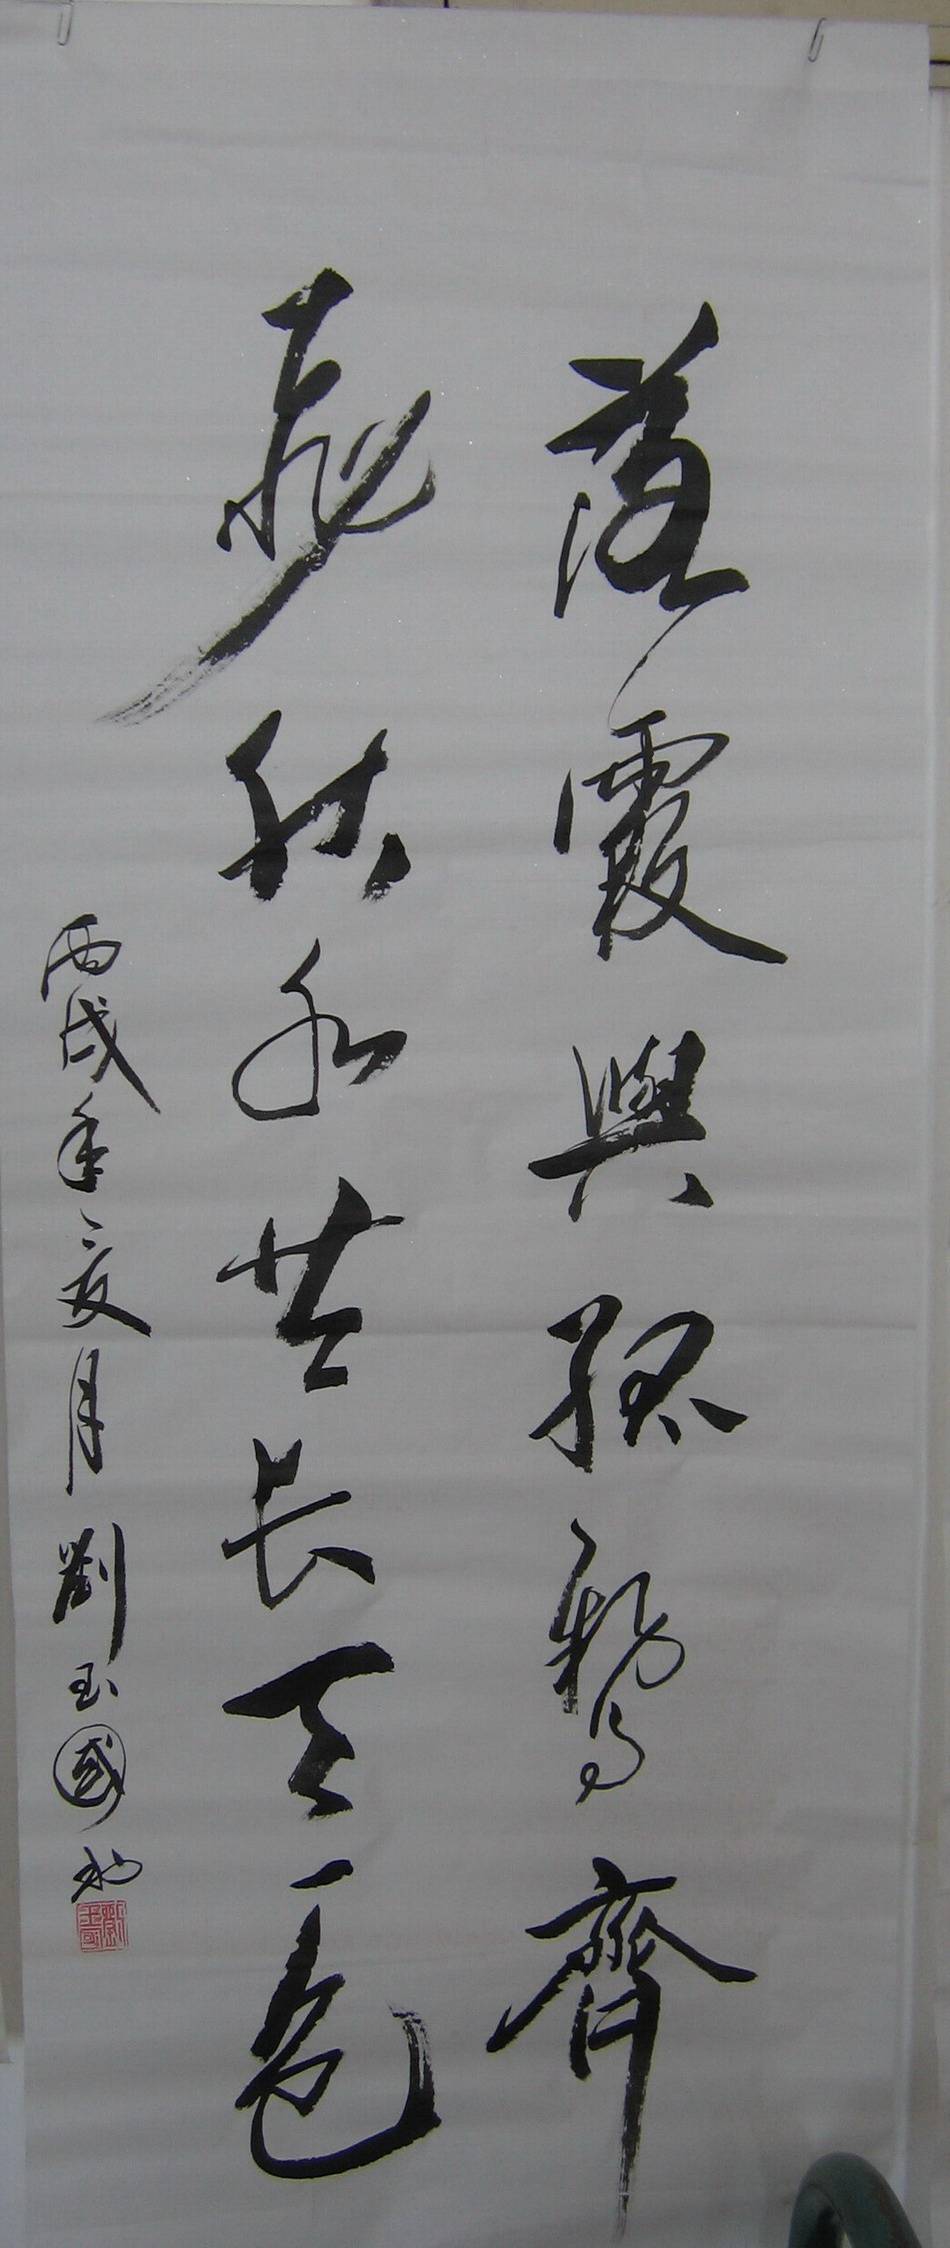 落霞與孤鶩齊
飛秋水共長天一色
丙戌年夏月劉玉國书
劉玉國